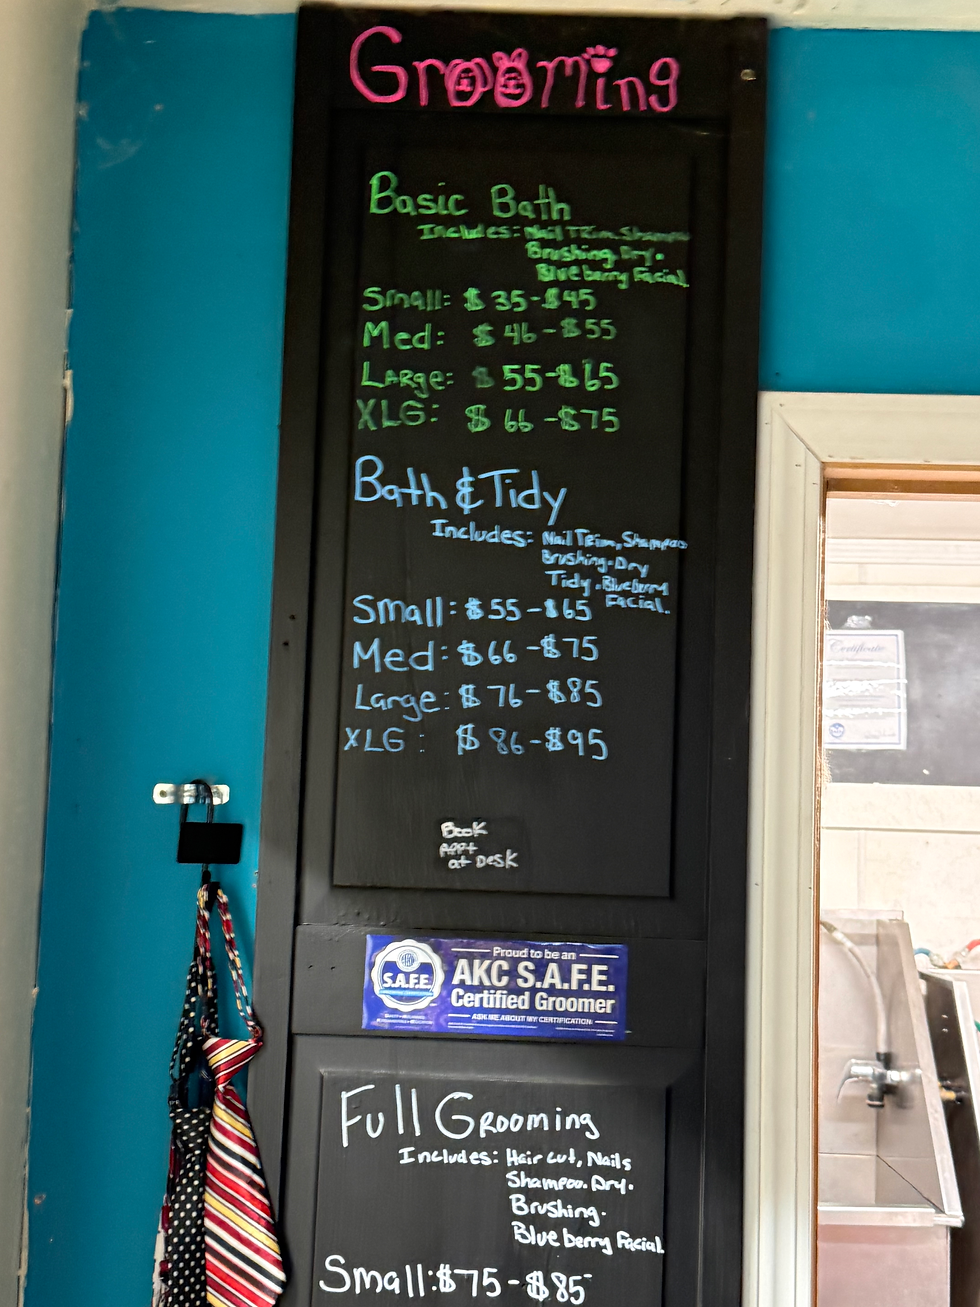 Grooming
Basic Bath
Includes: Nail Trim. Shampoo
Brushing. Dry.
Blueberry Facial.
Small: $35-$45
Med: $46-$55
LARge: $55-$65
XLG: $66-$75
Bath & Tidy
Includes: Nail Trim, Shampoo
Brushing. Dry
Tidy. Blueberry
Facial.
Small: $55-$65
Med: $66-$75
Large: $76-$85
XLG: $86-$95
Book
APPt
at Desk
Proud to be an
S.A.F.E.
AKC S.A.F.E.
Certified Groomer
ASK ME ABOUT MY CERTIFICATION
Full Grooming
Includes: Hair cut, Nails
Shampoo. Dry.
Brushing.
Blueberry Facial.
Small: $75-$85
Certificate